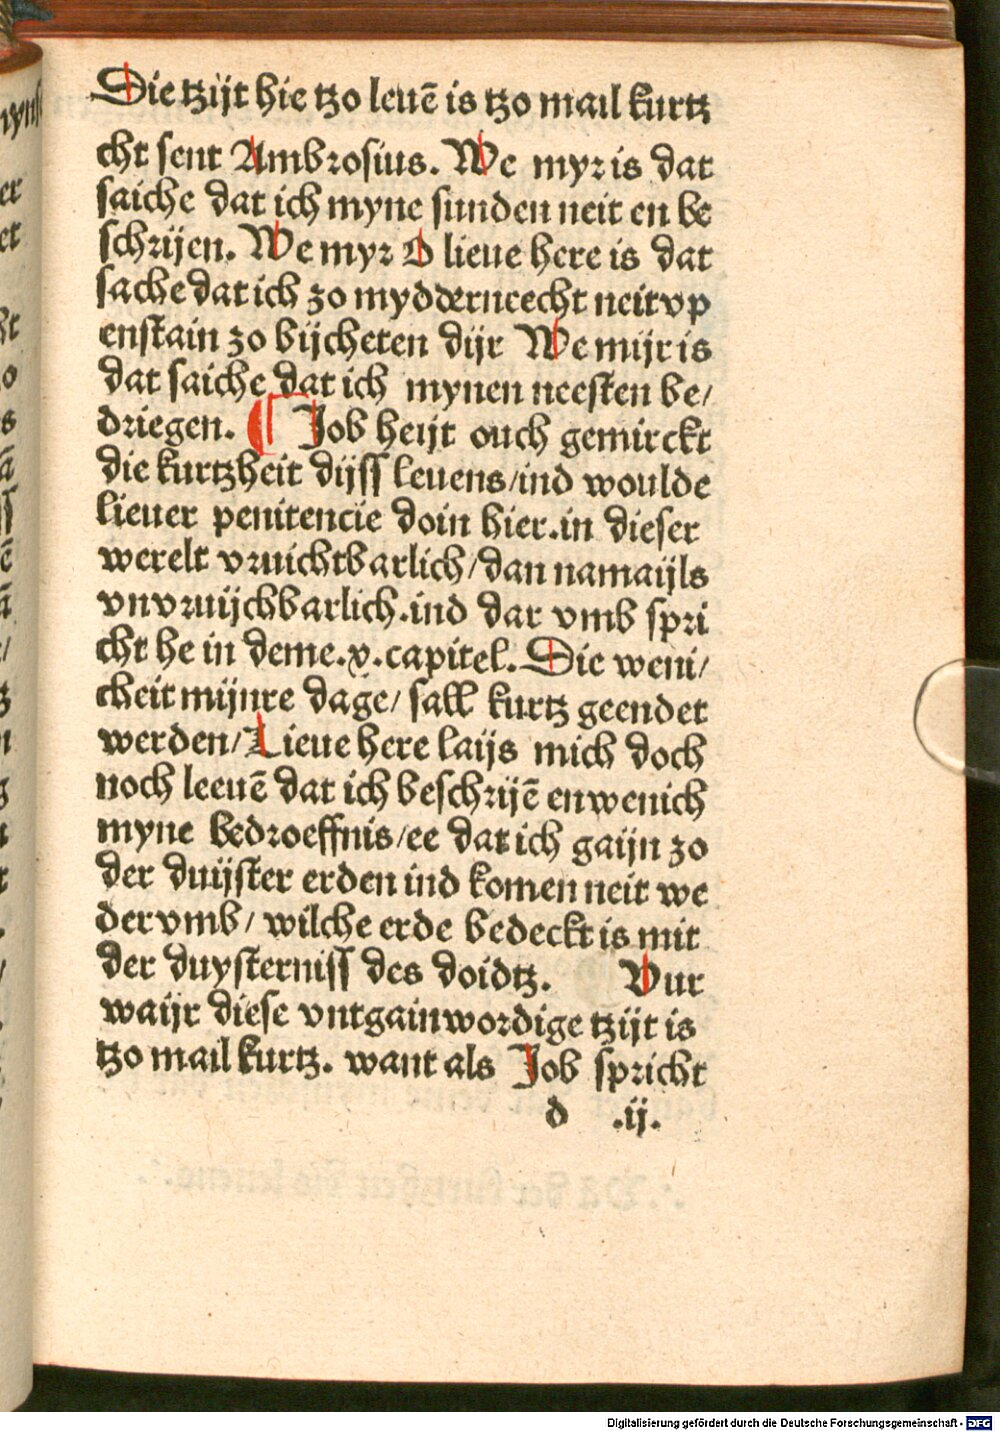 Die tzijt hie tzo leuē is tzo mail kurtz
cht sent Ambrosius. We myr is dat
saiche dat ich myne sunden neit en be
schrijen. We myr O lieue here is dat
sache dat ich zo mydderneecht neit vp
enstain zo bijcheten dijr We mijr is
dat saiche dat ich mynen neesten be/
driegen. ¶ Job heijt ouch gemirckt
die kurtzheit dijss leuens/ind woulde
lieuer penitencie doin hier.in dieser
werelt vruichtbarlich/dan namaijls
vnvruijchbarlich.ind dar vmb spri
cht he in deme.x.capitel. Die weni/
cheit mijnre dage/ sall kurtz geendet
werden/Lieue here laijs mich doch
noch leeuē dat ich beschrijē en wenich
myne bedroeffnis/ee dat ich gaijn zo
der duijster erden ind komen neit we
der vmb/ wilche erde bedeckt is mit
der duysterniss des doidtz. Vur
waijr diese vntgainwordige tzijt is
tzo mail kurtz. want als Job spricht
d .ij.
Digitalisierung gefördert durch die Deutsche Forschungsgemeinschaft - DFG